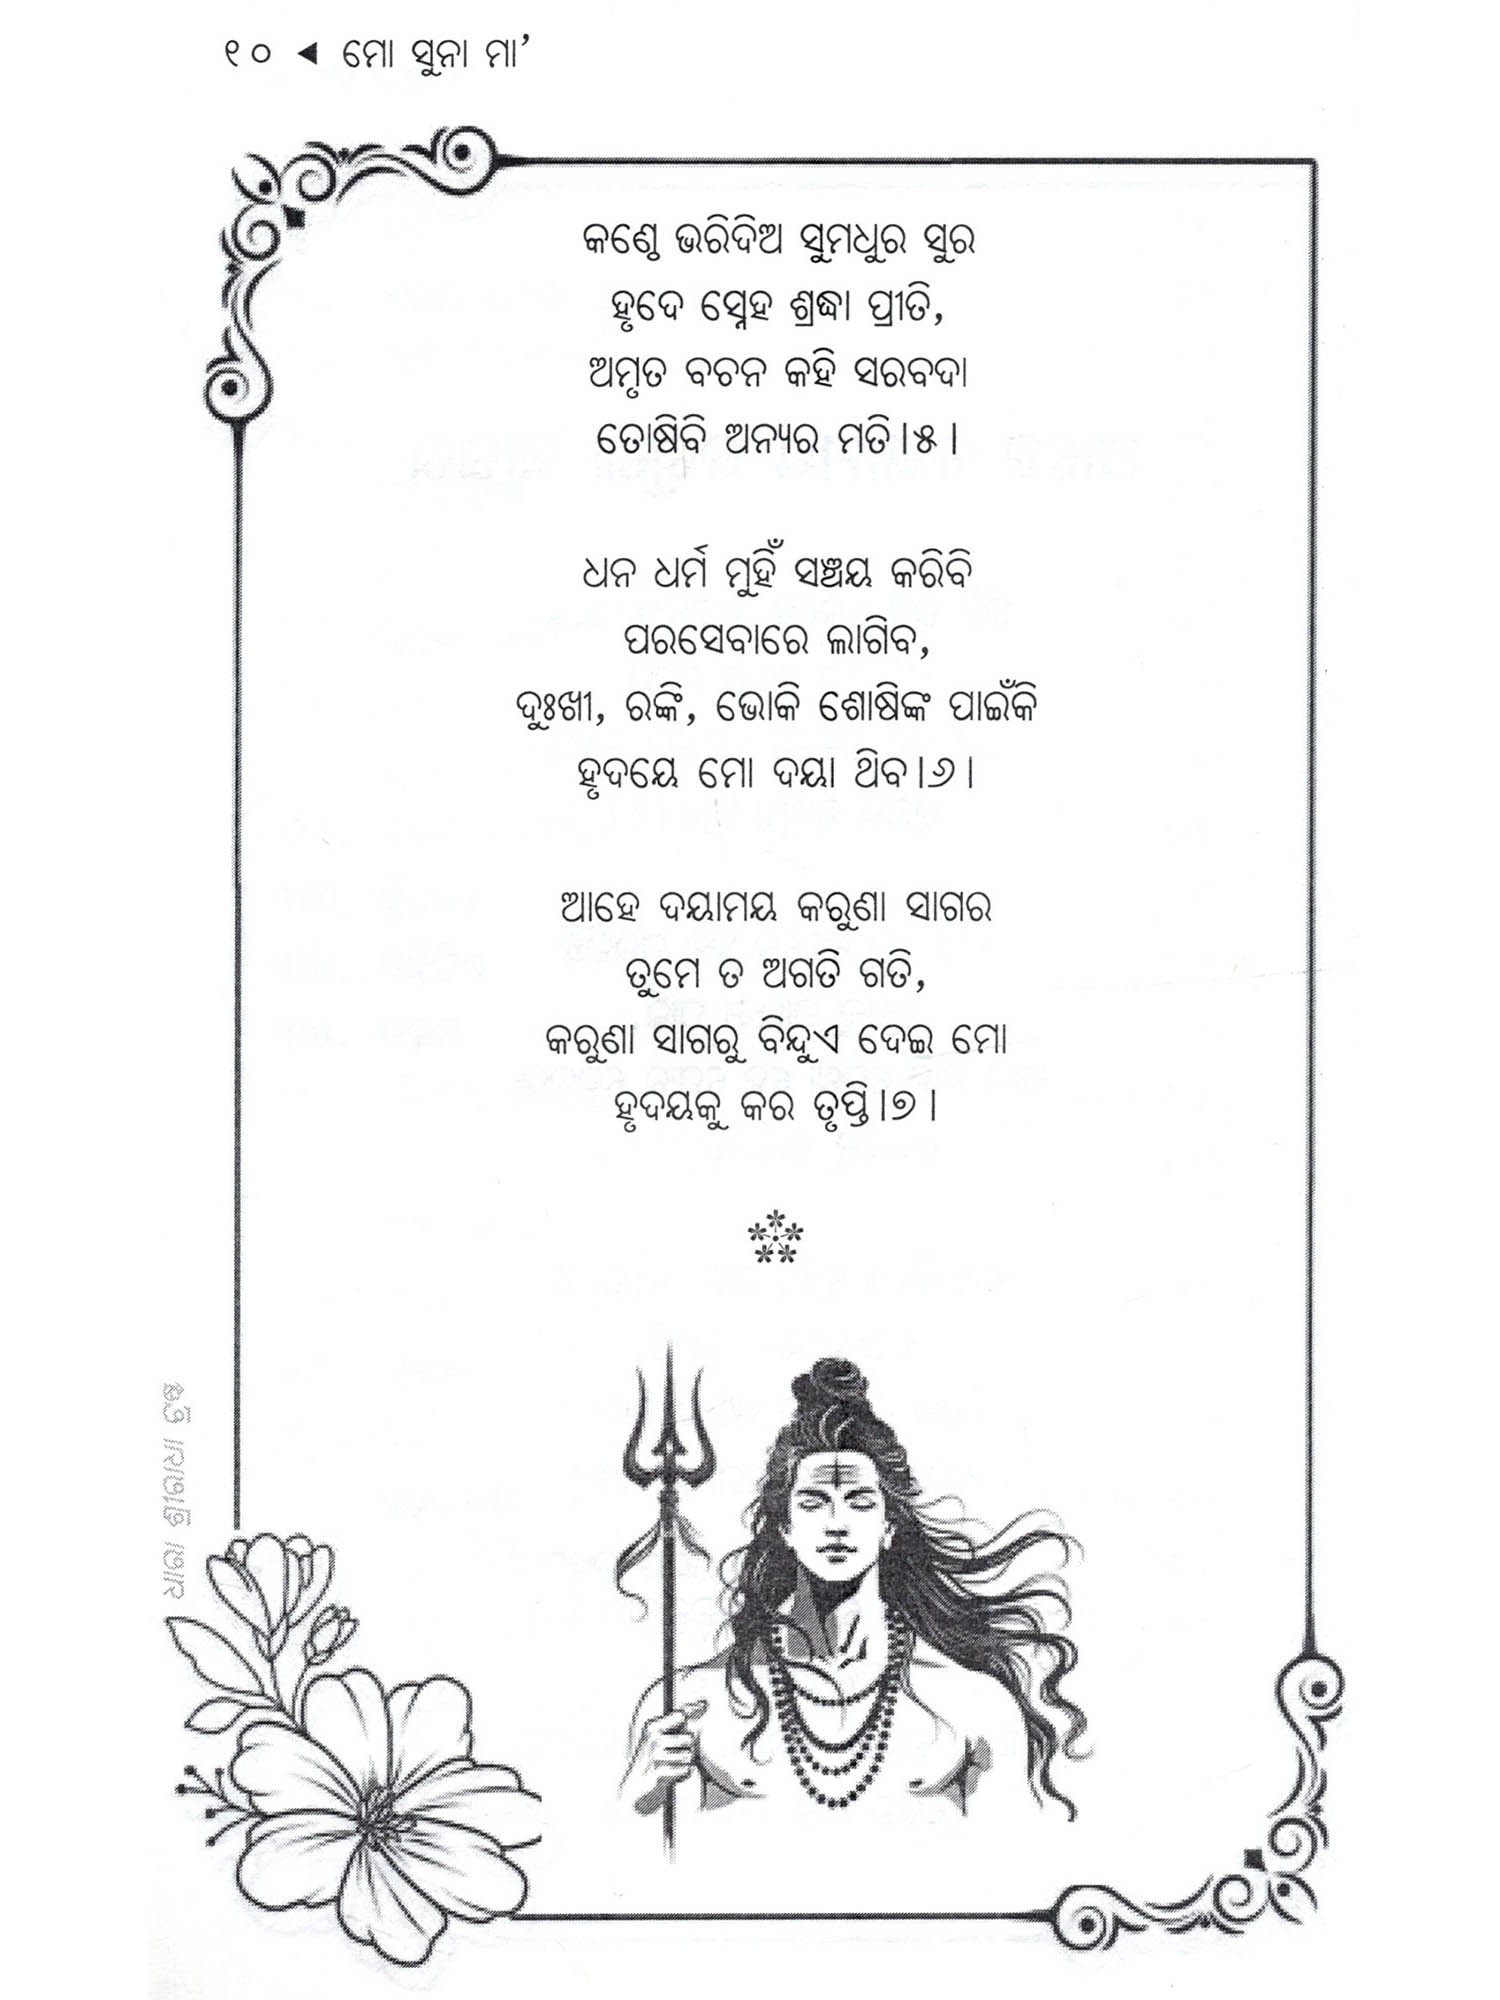 ୧୦ ◄ ମୋ ସୁନା ମା’
କଣ୍ଠେ ଭରିଦିଅ ସୁମଧୁର ସୁର
ହୃଦେ ସ୍ନେହ ଶ୍ରଦ୍ଧା ପ୍ରୀତି,
ଅମୃତ ବଚନ କହି ସରବଦା
ତୋଷିବି ଅନ୍ୟର ମତି।୫।
ଧନ ଧର୍ମ ମୁହିଁ ସଞ୍ଚୟ କରିବି
ପରସେବାରେ ଲାଗିବ,
ଦୁଃଖୀ, ରଙ୍କି, ଭୋକି ଶୋଷିଙ୍କ ପାଇଁକି
ହୃଦୟେ ମୋ ଦୟା ଥିବ।୬।
ଆହେ ଦୟାମୟ କରୁଣା ସାଗର
ତୁମେ ତ ଅଗତି ଗତି,
କରୁଣା ସାଗରୁ ବିନ୍ଦୁଏ ଦେଇ ମୋ
ହୃଦୟକୁ କର ତୃପ୍ତି।୭।